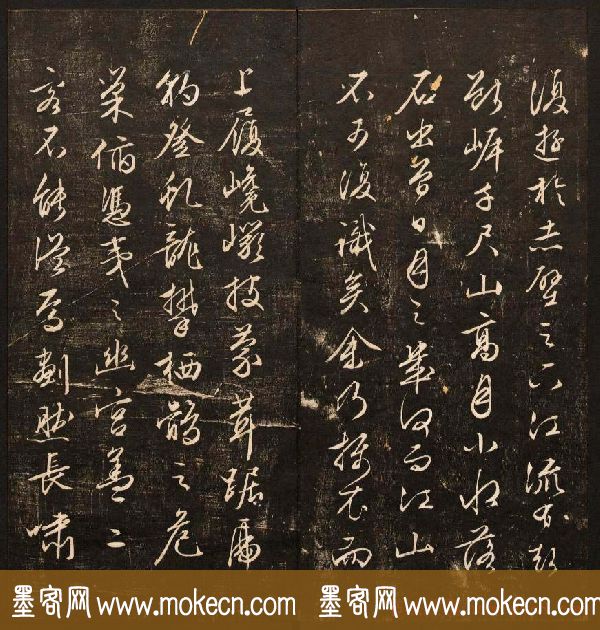 復遊於赤壁之下江流有聲
斷岸千尺山高月小水落
石出曾日月之幾何而江山
不可復識矣余乃攝衣而
上履巉巖披蒙茸踞虎
豹登虬龍攀栖鶻之危
巢俯馮夷之幽宮蓋二
客不能從焉劃然長嘯
墨客网 www.mokecn.com 墨客网 www.mokecn.com